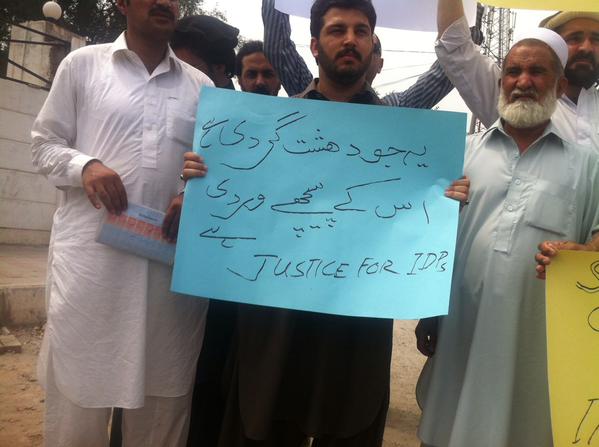 یہ جو دہشت گردی ہے
اس کے پیچھے وردی
ہے
JUSTICE FOR IDPs